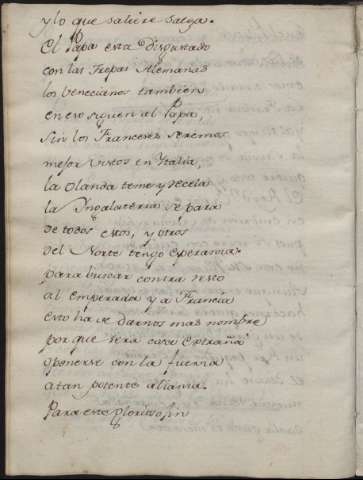 y lo que saliere salga.
El Papa esta disgustado
con las Tropas Alemanas
los Venecianos tambien
en eso siguen al Papa,
sin los Franceses seremos
mejor vistos en Italia,
la Olanda teme y recela
la Yngalaterra se para
de todos estos, y otros
del Norte tengo esperanza.
para buscar contra resto
al emperador y a Francia
esto ha de darnos mas nombre
por que será cosa extraña
oponerse con la fuerza
a tan potente alianza.
Para este glorioso fin